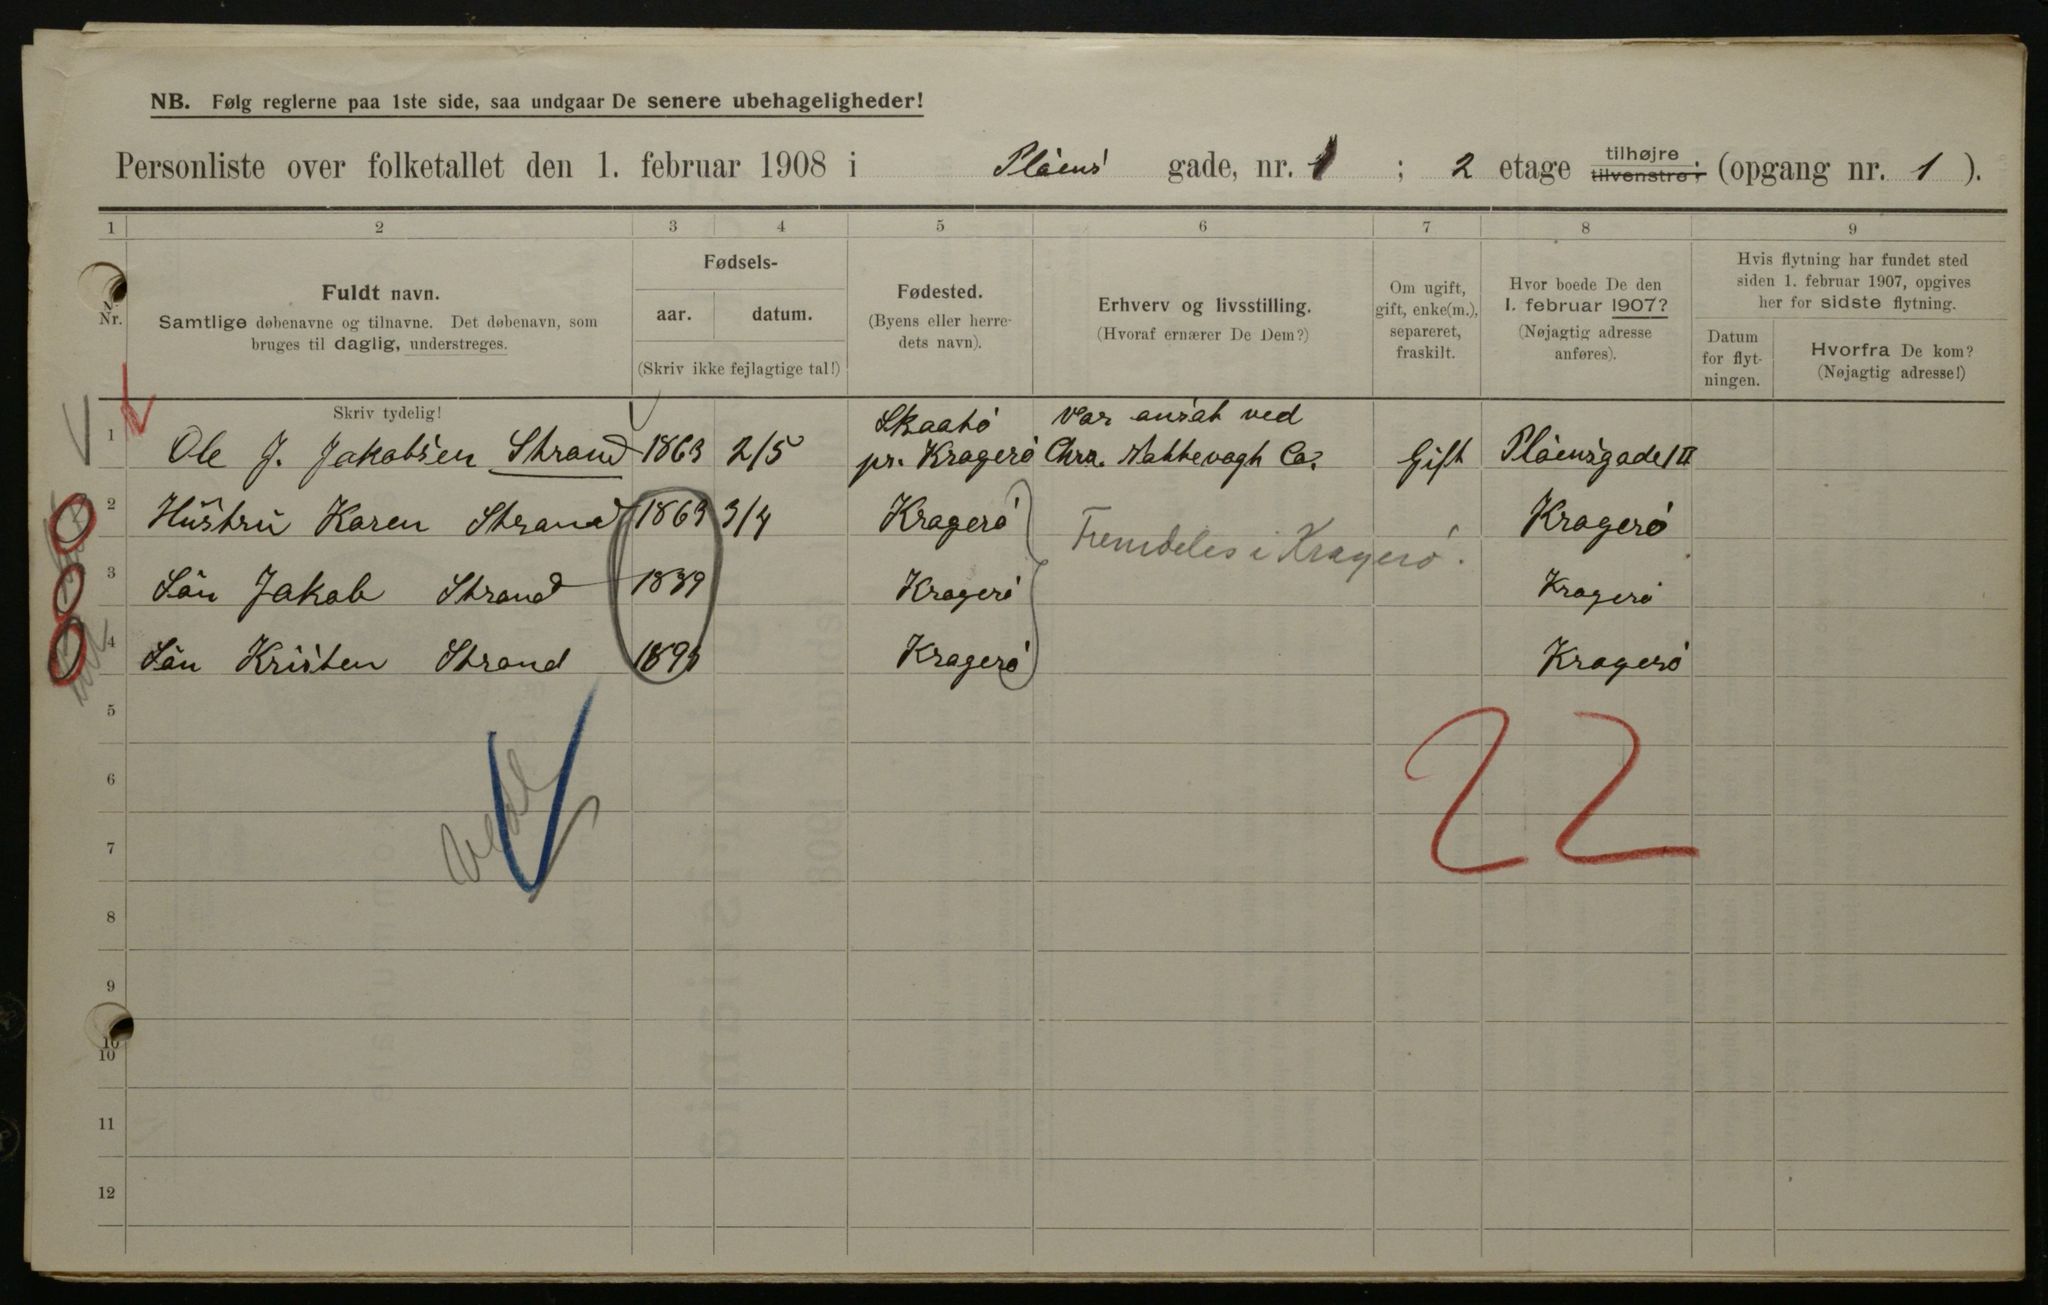 NB. Følg reglerne paa 1ste side, saa undgaar De senere ubehageligheder!
Personliste over folketallet den 1. februar 1908 i Pløens gade, nr. 1 ; 2 etage tilhøjre tilvenstre; (opgang nr. 1 ).
1 2 3 4 5 6 7 8 9
Nr.
Fuldt navn.
Samtlige døbenavne og tilnavne. Det døbenavn, som
bruges til daglig, understreges.
Skriv tydelig!
Fødsels-
aar. datum.
(Skriv ikke fejlagtige tal!)
Fødested.
(Byens eller herre-
dets navn).
Erhverv og livsstilling.
(Hvoraf ernærer De Dem?)
Om ugift,
gift, enke(m.),
separeret,
fraskilt.
Hvor boede De den
1. februar 1907?
(Nøjagtig adresse
anføres).
Hvis flytning har fundet sted
siden 1. februar 1907, opgives
her for sidste flytning.
Datum
for flyt-
ningen.
Hvorfra De kom?
(Nøjagtig adresse!)
Skaatø Var ansat ved
1 Ole J. Jakobsen Strand 1863 2/5 pr. Kragerø Chra. Co. Gift Pløensgade 1 II
2 Hustru Karen Strand 1863 3/4 Kragerø Kragerø
Fremdeles i Kragerø.
3 Søn Jakob Strand 1889 Kragerø Kragerø
4 Søn Kristen Strand Kragerø Kragerø
5
22
6
7
8
9
10
10
11
12